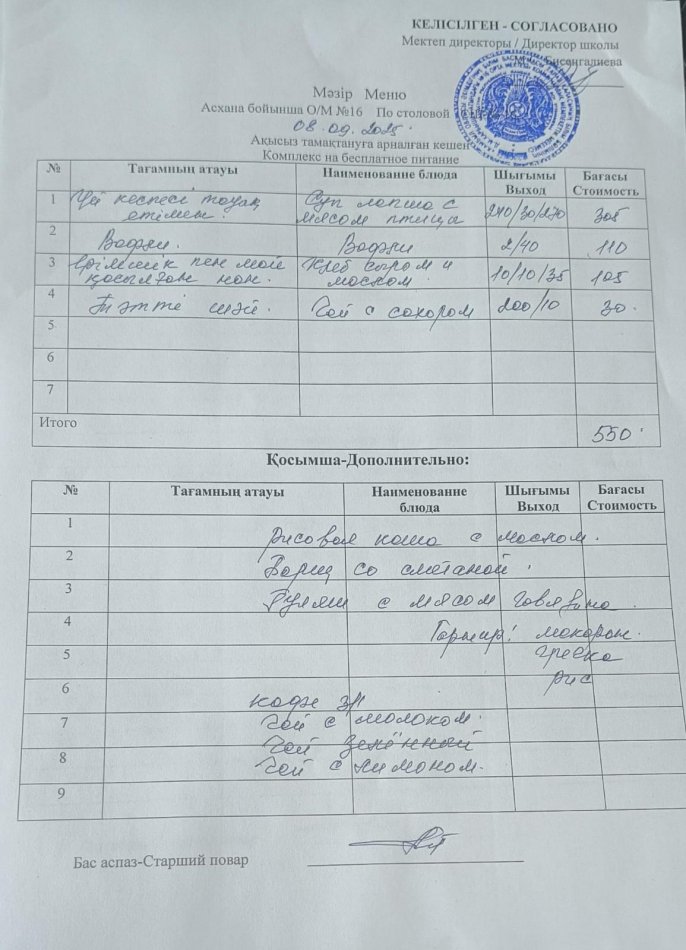 КЕЛІСІЛГЕН - СОГЛАСОВАНО
Мектеп директоры / Директор школы
Бисенгалиева
Мәзір Меню
Асхана бойынша О/М №16 По столовой
08.09.2025
Ақысыз тамақтануға арналған кешен
Комплекс на бесплатное питание
№ Тағамның атауы Наименование блюда Шығымы Выход Бағасы Стоимость
1 Үй кеспесі тауық етімен. Суп лапша с мясом птица 240/30/270 305
2 Вафли. Вафли 2/40 110
3 Ірімшік пен май қосылған нан. Хлеб сыром и маслом. 10/10/35 105
4 Тәтті шәй. Чай с сахаром 200/10 30
5
6
7
Итого 550
Қосымша-Дополнительно:
№ Тағамның атауы Наименование блюда Шығымы Выход Бағасы Стоимость
1 Рисовая каша с маслом.
2 Борщ со сметаной.
3 Гуляш с мясом говядина
4 Гарнир: макарон.
5 гречка
6 рис
кофе 3/1
7 Чай с молоком.
Чай зелённый
8 Чай с лимоном.
9
Бас аспаз-Старший повар